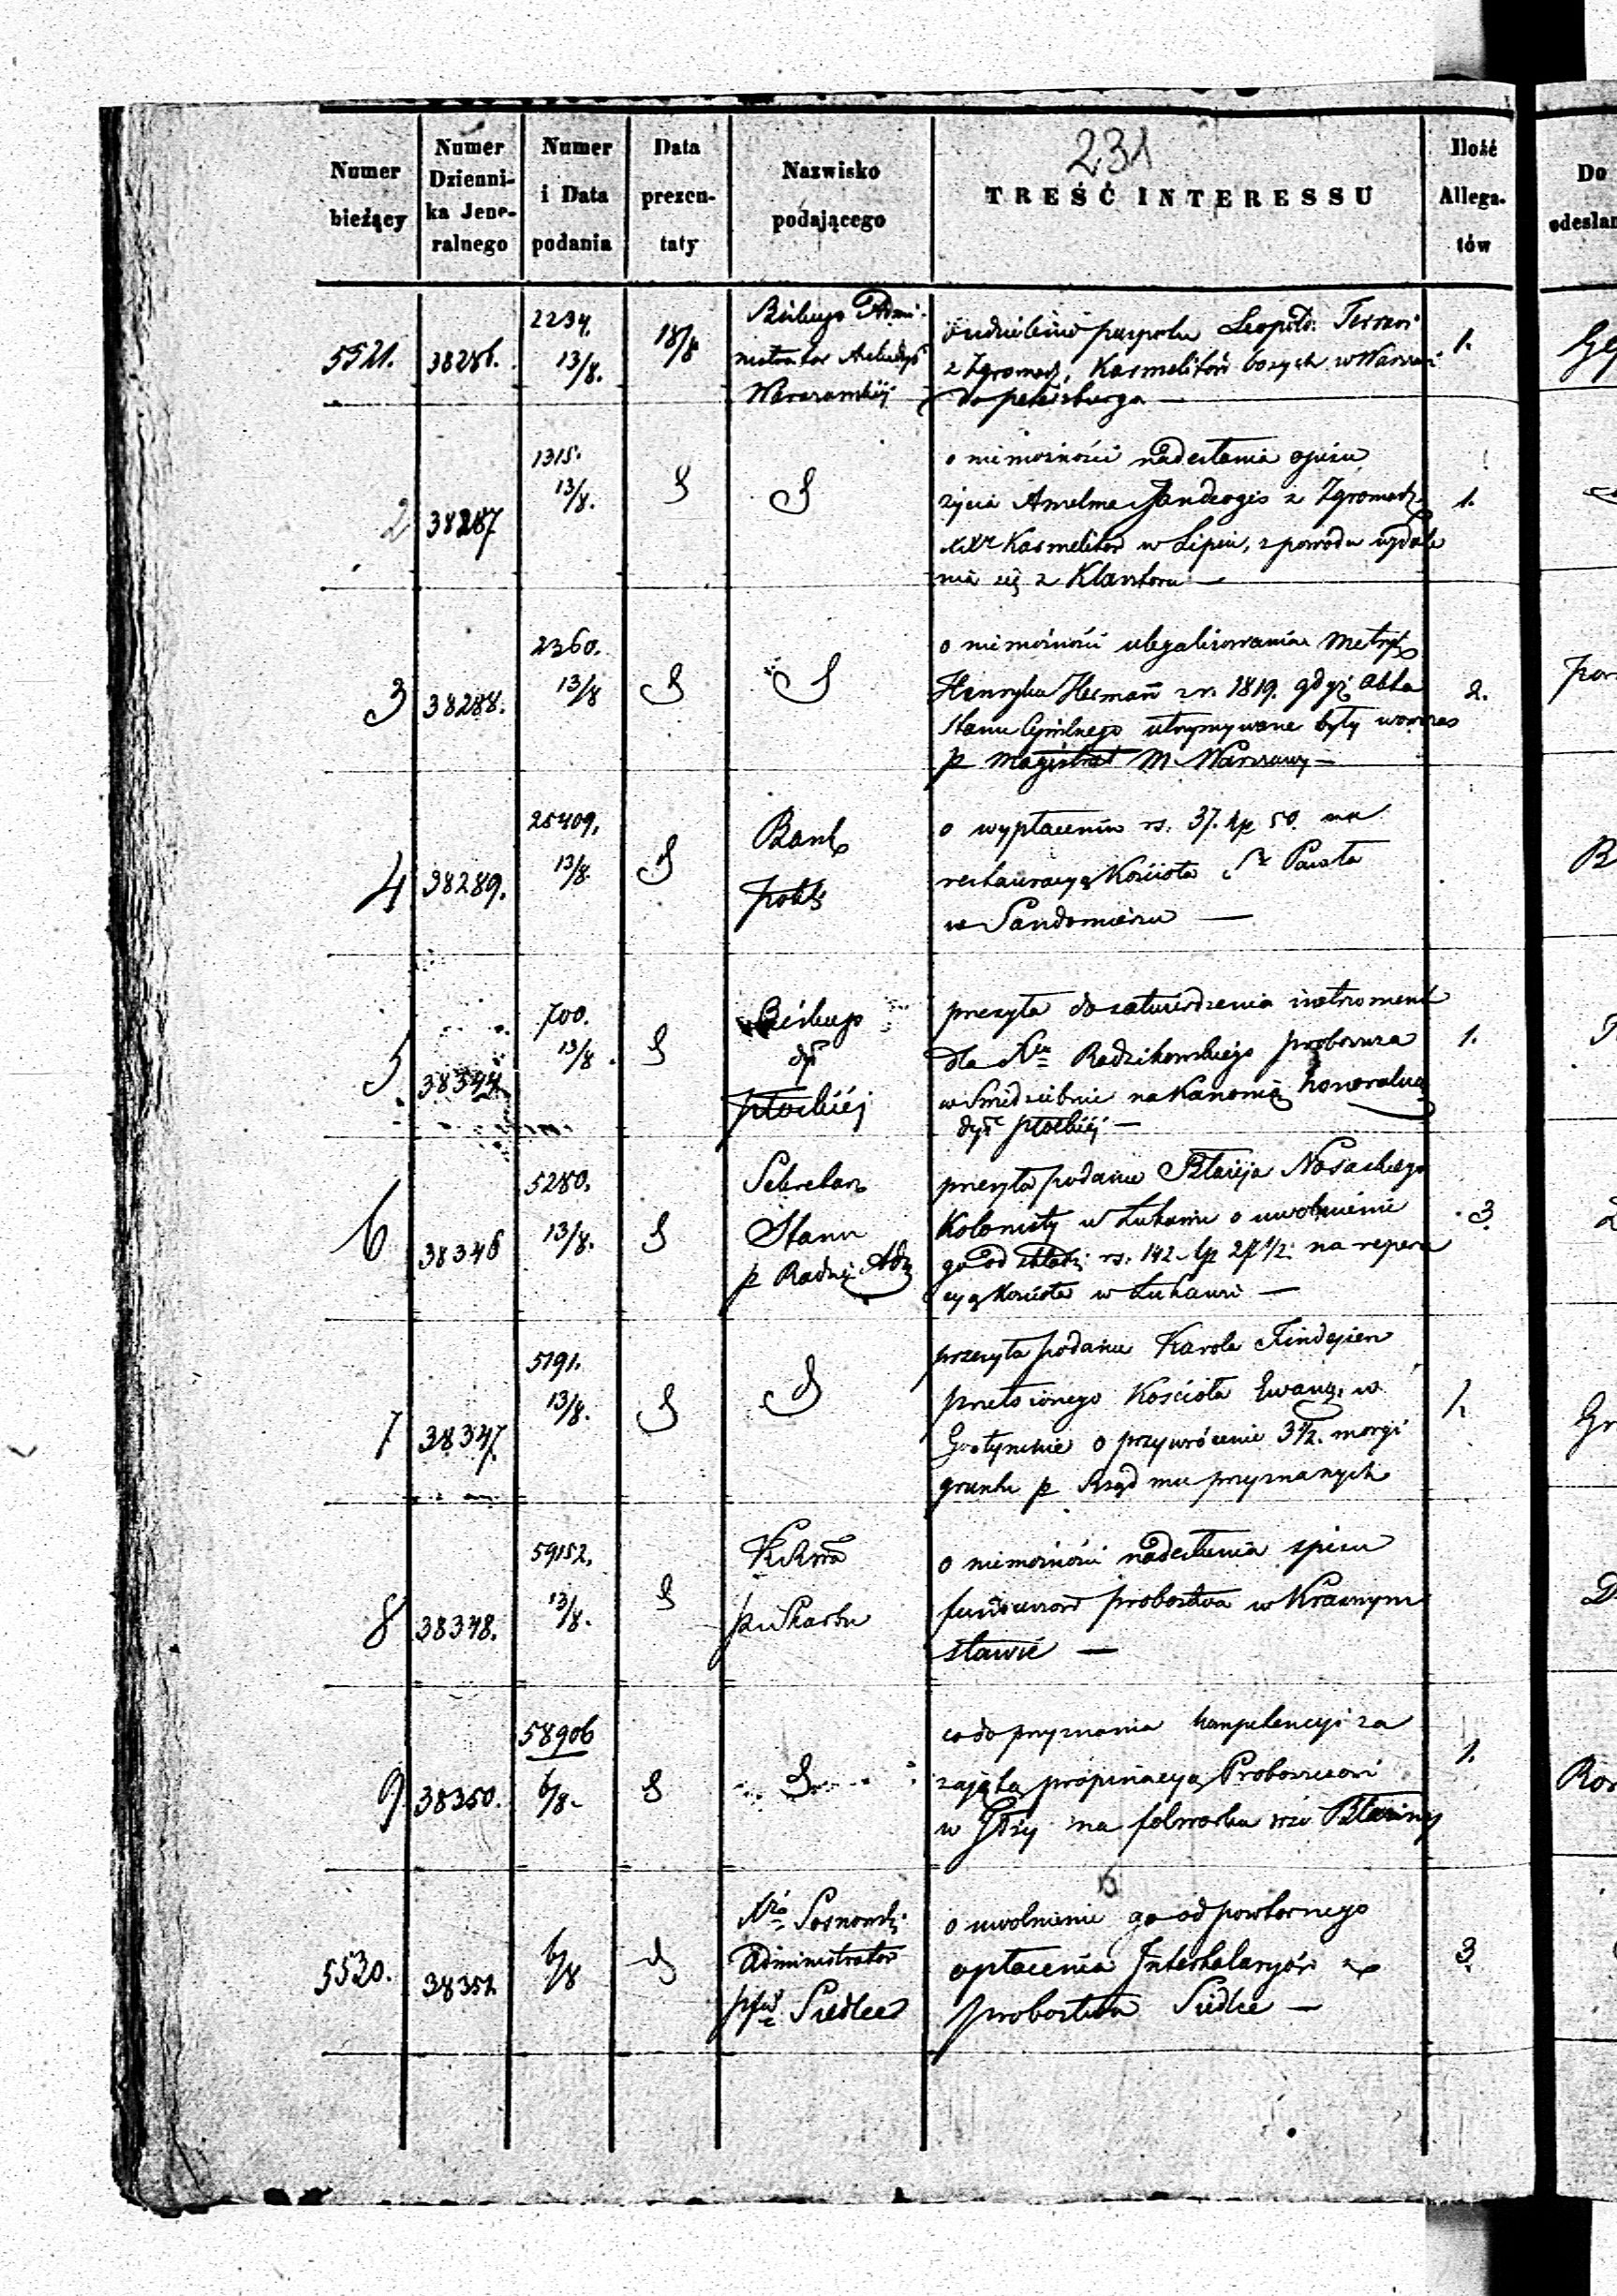 231
Numer bieżący
Numer Dziennika Jeneralnego
Numer i Data podania
Data prezentaty
Nazwisko podającego
TREŚĆ INTERESSU
Ilość Allegatów
Do
odesłan
5521. 38286. 2234. 13/8. 18/8
Biskup Admi-
nistrator Archidyec
Warszawskiej
o udzielenie paszportu Leopold.
z Zgromadz. Karmelitów bosych w Warszawi
do petersburga —
1.
2 38287 1315. 13/8.
o niemożności nadesłania opisu
życia Anselma z Zgromadz.
XXr Karmelitów w Lipiu, z powodu wydale
nia się z Klasztoru —
1.
3 38288. 2360. 13/8
o niemożności ulegalizowania metryk
Henryka Hermann z r. 1819. gdyż akta
Stanu Cywilnego utrzymywane były wówczas
p Magistrat M. Warszawy —
2.
4 38289. 25409. 13/8.
Bank
polsk
o wypłaceniu rs. 37. kp 50. na
restauracyą Kościoła Sgo Pawła
w Sandomierzu —
B
5 38344 700. 13/8.
Biskup
dyec
płockiej
przesyła do zatwierdzenia instrument
dla Xa Radzikowskiego proboszcza
w na Kanonią honoralną
dyec płockiej —
1.
6 38346 5280. 13/8.
Sekretarz
Stanu
p Radzie Adm
przesyła podanie Nosackiego
Kolonisty w o uwolnienie
go od składki rs. 142. kp 27 1/2 na repera
cyą Kościoła w —
3.
7 38347. 5191. 13/8.
przesyła podanie Karola Findeisen
przełożonego Kościoła Ewang. w
Gostyninie o przywrócenie 3 1/2. morgi
gruntu p Rząd mu przyznanych
1.
Gr
8 38348. 59152. 13/8.
p i Skarbu
o niemożności nadesłania spisu
funduszów probostwa w Krasnym
stawie —
9 38350. 58906 6/8.
co do przyznania kompetencyi za
zajętą propinacyą Proboszczowi
w na folwarku wsi
1.
5530. 38352 6/8
Xdz Sosnowski
Administrator
Siedlec
o uwolnienie go od powtórnego
opłacenia Interkalaryów z
probostwa Siedlce —
3.